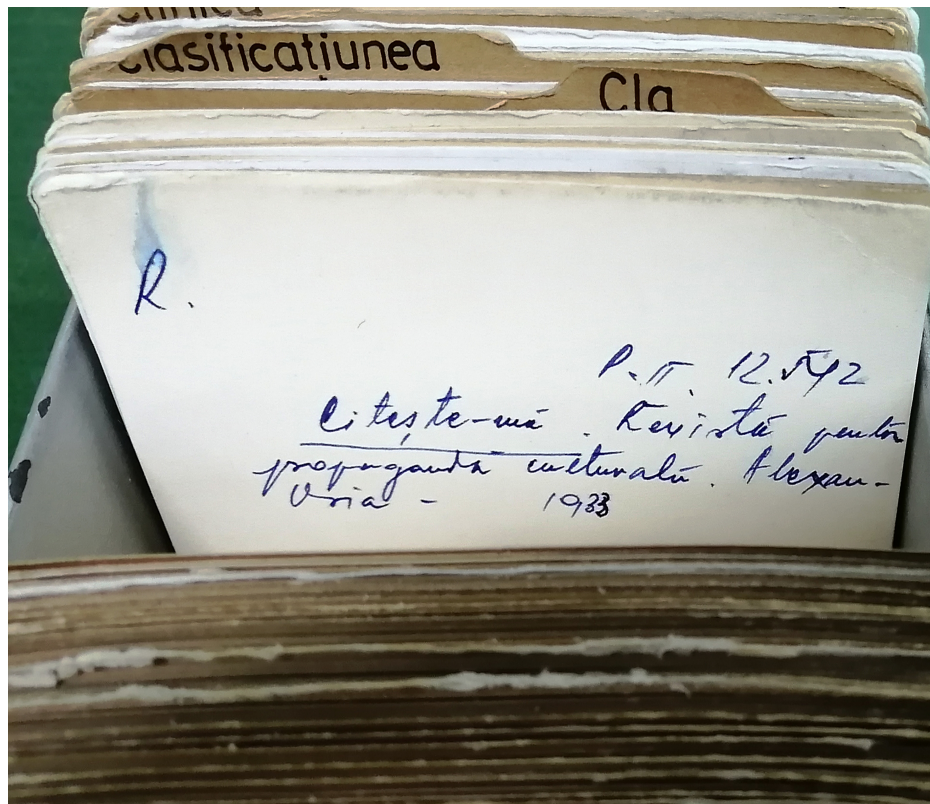 clinica
clasificațiunea
Cla
R.
P. II. 12.542
Citește-mă. Revistă pentru
propagandă culturală. Alexan-
dria - 1933